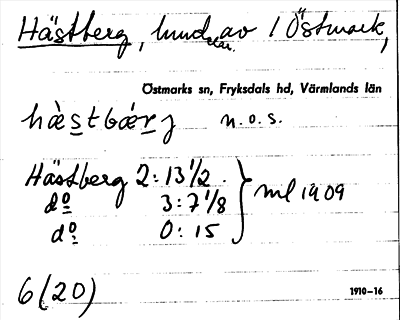 Hästberg, lund av 1 Östmark,
Östmarks sn, Fryksdals hd, Värmlands län
hæ̀stbær̨j n.o.s.
Hästberg 2:13 1/2
dº 3:7 1/8 ml 1909
dº 0:15
6(20)
1910–16